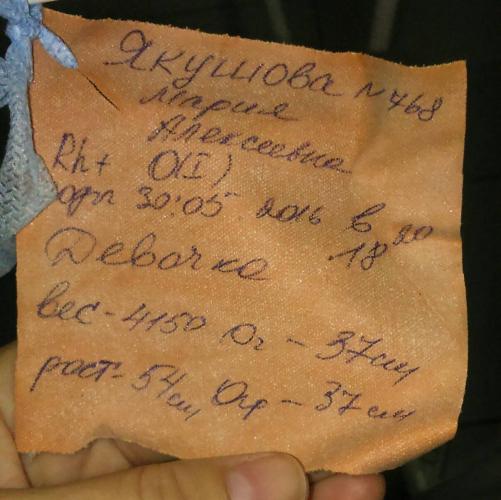 Якушова N 468
Мария
Алексеевна
Rh+ O(I)
30.05 2016 в 20
18
Девочка
вес - 4150 Ог - 37 см
рост - 54 см Огр - 37 см